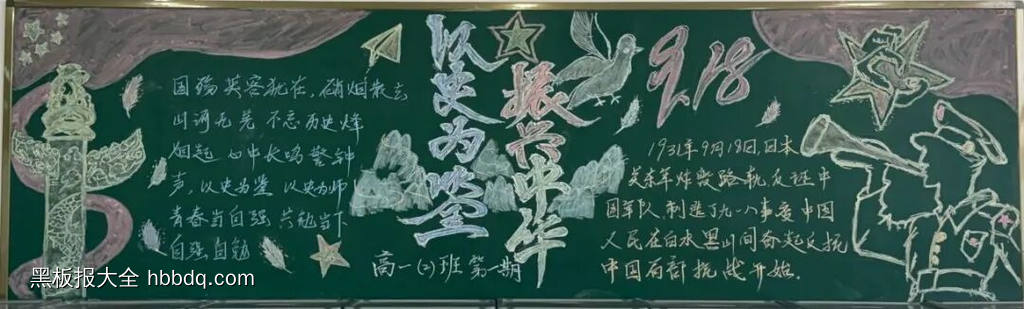 国殇英容犹在，硝烟散去
山河无恙 不忘历史烽
烟起 心中长鸣警钟
声，以史为鉴 以史为师
青春当自强 共勉当下
自强自勉
以史为鉴
振兴中华
高一(2)班 第一期
9.18
1931年9月18日，日本
关东军炸毁路轨反诬中
国军队，制造了九一八事变 中国
人民在白水黑山间奋起反抗
中国局部抗战开始。
黑板报大全 hbbdq.com